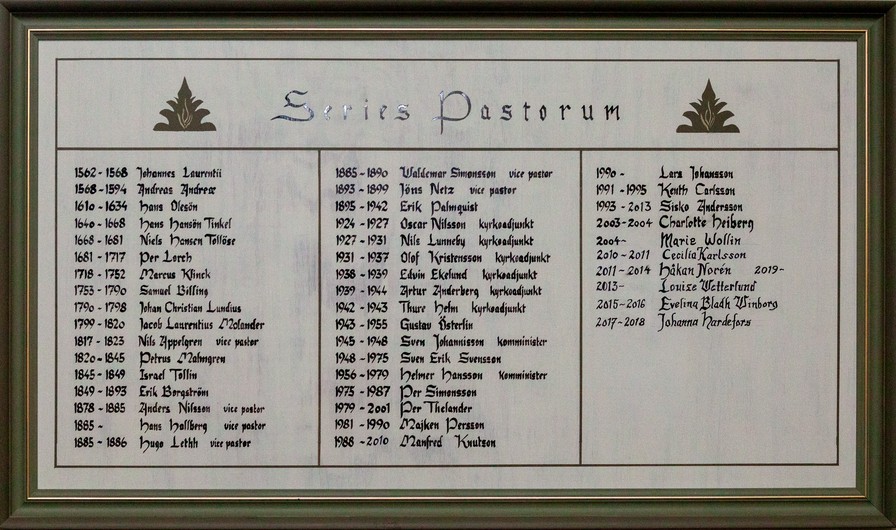 Series Pastorum
1562 - 1568 Johannes Laurentii
1568 - 1594 Andreas Andreæ
1610 - 1634 Hans Olesön
1640 - 1668 Hans Hansön Tinkel
1668 - 1681 Niels Hansen Tollöse
1681 - 1717 Per Lorch
1718 - 1752 Marcus Kfinck
1753 - 1790 Samuel Billing
1790 - 1798 Johan Christian Lundius
1799 - 1820 Jacob Laurentius Molander
1817 - 1823 Nils Appelgren vice pastor
1820 - 1845 Petrus Malmgren
1845 - 1849 Israel Tollin
1849 - 1893 Erik Borgström
1878 - 1885 Anders Nilsson vice pastor
1885 - Hans Hallberg vice pastor
1885 - 1886 Hugo Lethh vice pastor
1885 - 1890 Waldemar Simonsson vice pastor
1893 - 1899 Jöns Netz vice pastor
1895 - 1942 Erik Palmquist
1924 - 1927 Oscar Nilsson kyrkoadjunkt
1927 - 1931 Nils Lunneby kyrkoadjunkt
1931 - 1937 Olof Kristensson kyrkoadjunkt
1938 - 1939 Edvin Ekelund kyrkoadjunkt
1939 - 1944 Artur Anderberg kyrkoadjunkt
1942 - 1943 Thure Helm kyrkoadjunkt
1943 - 1955 Gustav Österlin
1945 - 1948 Sven Johannisson komminister
1948 - 1975 Sven Erik Svensson
1956 - 1979 Helmer Hansson komminister
1975 - 1987 Per Simonsson
1979 - 2001 Per Thelander
1981 - 1990 Majken Persson
1988 - 2010 Manfred Knutson
1990 - Lars Johansson
1991 - 1995 Kenth Carlsson
1993 - 2013 Sisko Andersson
2003 - 2004 Charlotte Heiberg
2004 - Marie Wollin
2010 - 2011 Cecilia Karlsson
2011 - 2014 Håkan Norén 2019 -
2013 - Louise Wetterlund
2015 - 2016 Evelina Bladh Winborg
2017 - 2018 Johanna Hardefors